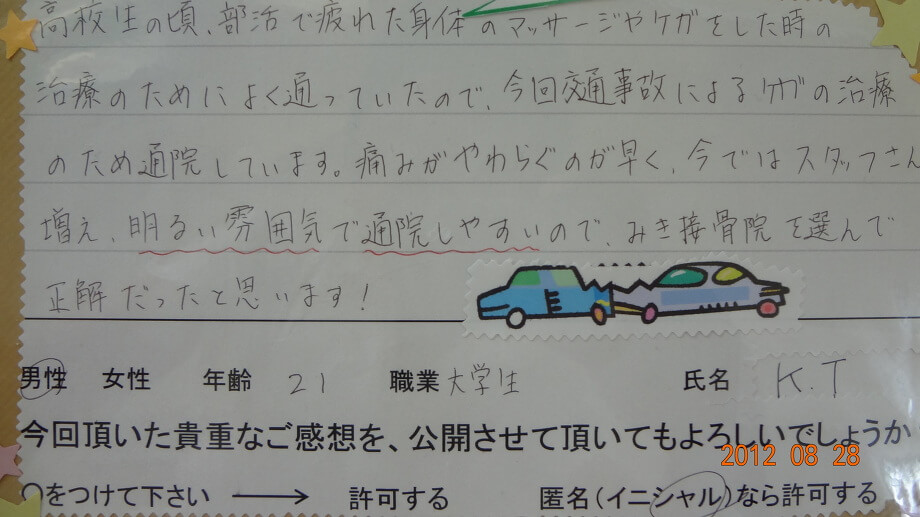 高校生の頃、部活で疲れた身体のマッサージやケガをした時の
治療のためによく通っていたので、今回交通事故によるケガの治療
のため通院しています。痛みがやわらぐのが早く、今ではスタッフさん
増え、明るい雰囲気で通院しやすいので、みき接骨院を選んで
正解だったと思います!
男性 女性 年齢 21 職業 大学生 氏名 K.T
今回頂いた貴重なご感想を、公開させて頂いてもよろしいでしょうか
2012 08 28
○をつけて下さい → 許可する 匿名(イニシャル)なら許可する